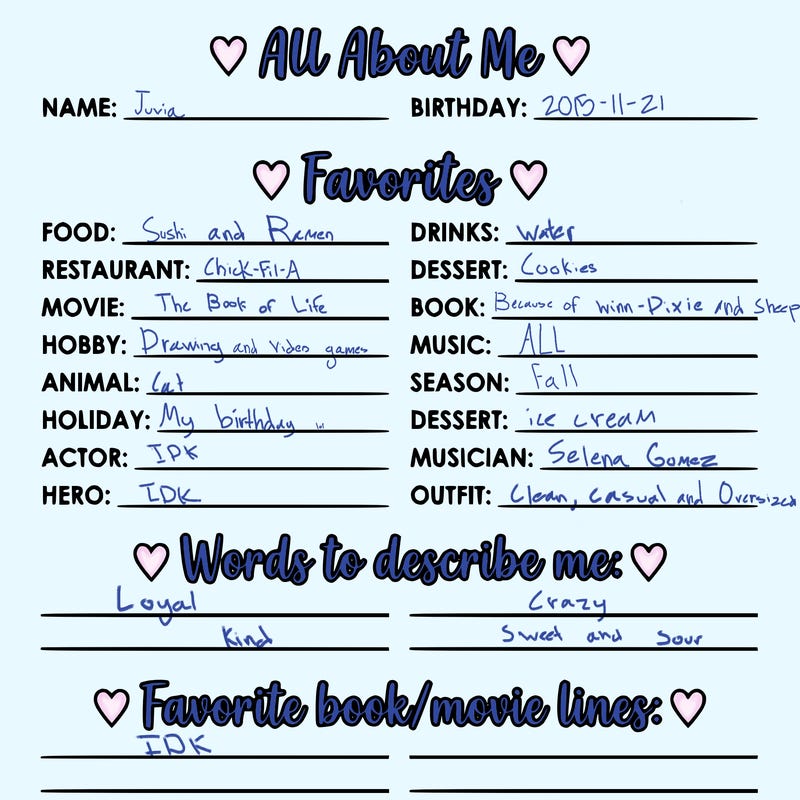 All About Me
NAME: Juvia BIRTHDAY: 2015-11-21
Favorites
FOOD: Sushi and Ramen DRINKS: water
RESTAURANT: Chick-Fil-A DESSERT: Cookies
MOVIE: The Book of Life BOOK: Because of winn-Dixie and Sheep
HOBBY: Drawing and Video games MUSIC: ALL
ANIMAL: Cat SEASON: Fall
HOLIDAY: My birthday DESSERT: ice cream
ACTOR: IDK MUSICIAN: Selena Gomez
HERO: IDK OUTFIT: Clean, casual and Oversized
Words to describe me:
Loyal Crazy
Kind Sweet and Sour
Favorite book/movie lines:
IDK